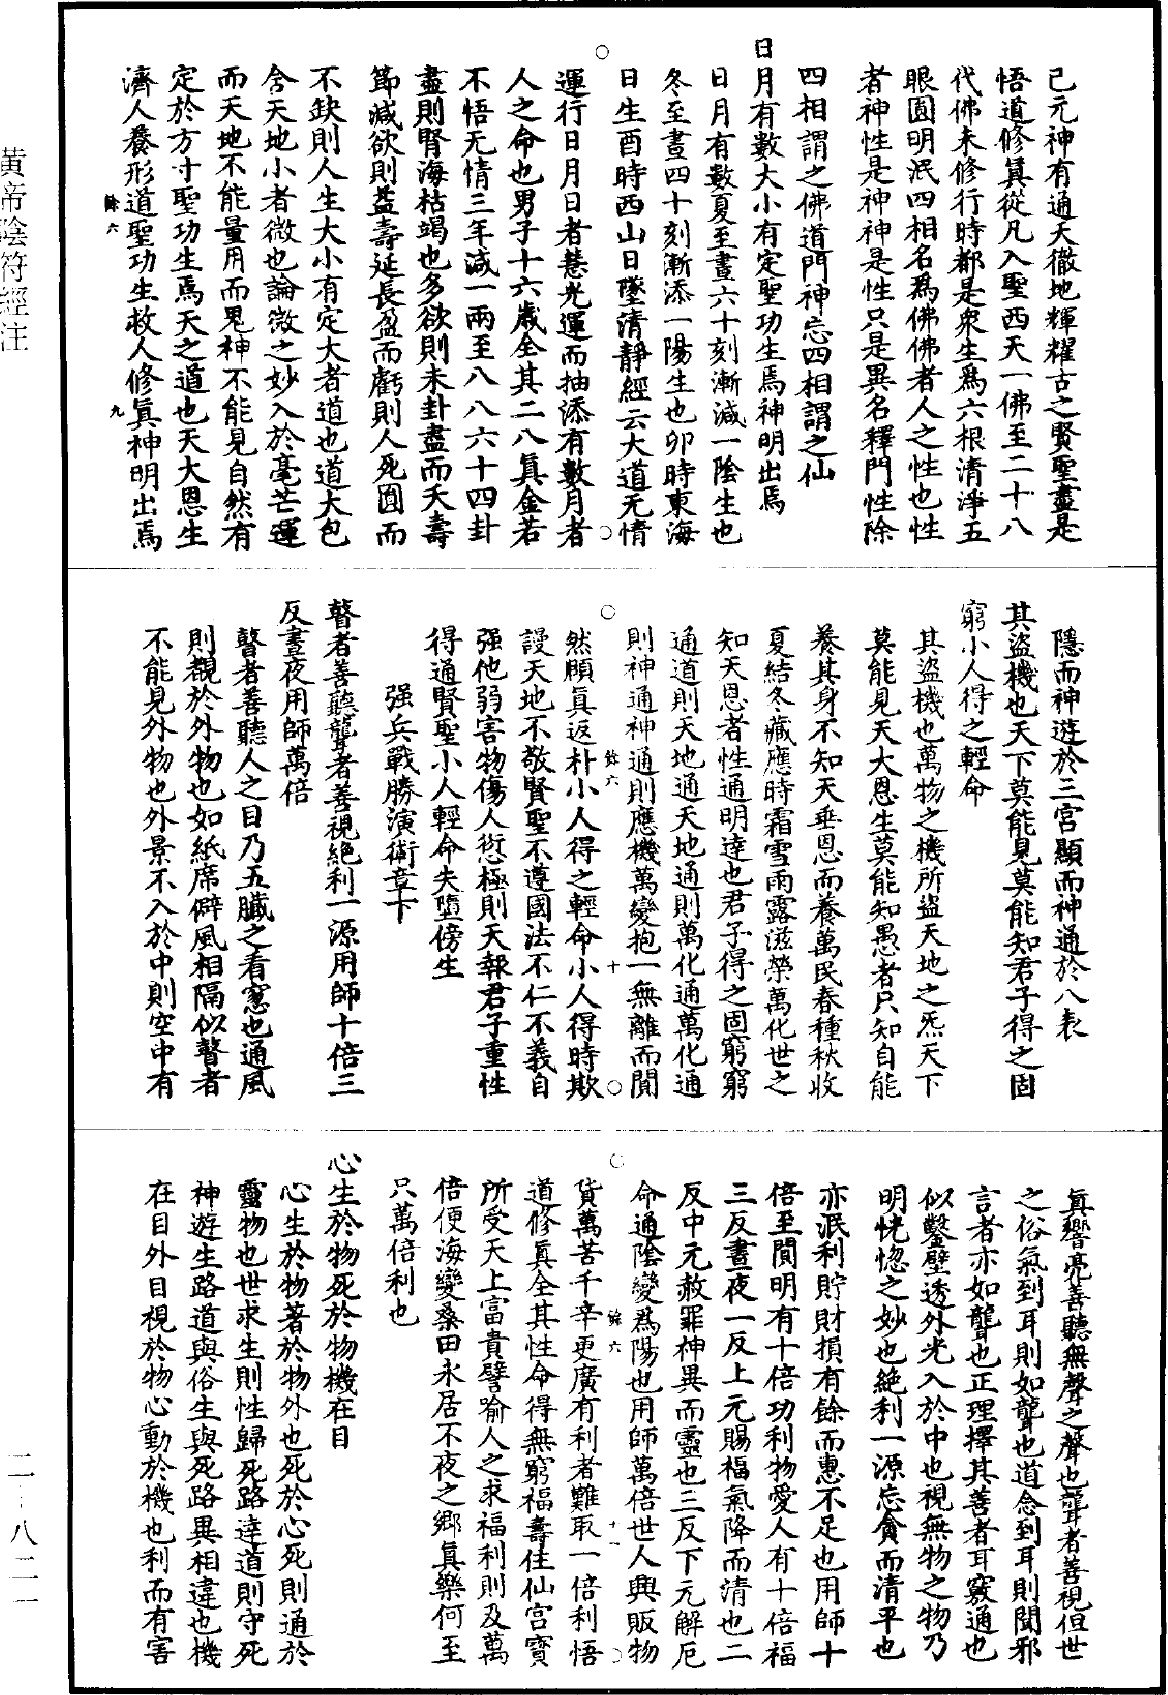 己元神有通天徹地輝耀古之賢聖盡是
悟道修眞從凡入聖西天一佛至二十八
代佛未修行時都是衆生爲六根清淨五
眼圓明泯四相名爲佛佛者人之性也性
者神性是神神是性只是異名釋門性除
四相謂之佛道門神忘四相謂之仙
日月有數大小有定聖功生焉神明出焉
日月有數夏至晝六十刻漸減一陰生也
冬至晝四十刻漸添一陽生也卯時東海
日生酉時西山日墜清靜經云大道无情
運行日月日者慧光運而抽添有數月者
人之命也男子十六歲全其二八眞金若
不悟无情三年減一兩至八八六十四卦
盡則腎海枯竭也多欲則未卦盡而夭壽
節減欲則益壽延長盈而虧則人死圓而
不缺則人生大小有定大者道也道大包
含天地小者微也論微之妙入於毫芒運
而天地不能量用而鬼神不能見自然有
定於方寸聖功生焉天之道也天大恩生
濟人養形道聖功生救人修眞神明出焉
餘六
九
隱而神遊於三宮顯而神通於八表
其盜機也天下莫能見莫能知君子得之固
窮小人得之輕命
其盜機也萬物之機所盜天地之炁天下
莫能見天大恩生莫能知愚者只知自能
養其身不知天垂恩而養萬民春種秋收
夏結冬藏應時霜雪雨露滋榮萬化世之
知天恩者性通明達也君子得之固窮窮
通道則天地通天地通則萬化通萬化通
則神通神通則應機萬變抱一無離而閒
餘六
十
然願眞返朴小人得之輕命小人得時欺
謾天地不敬賢聖不遵國法不仁不義自
强他弱害物傷人愆極則天報君子重性
得通賢聖小人輕命失墮傍生
强兵戰勝演術章下
瞽者善聽聾者善視絕利一源用師十倍三
反晝夜用師萬倍
瞽者善聽人之目乃五臟之看窻也通風
則覩於外物也如紙席僻風相隔似瞽者
不能見外物也外景不入於中則空中有
眞響亮善聽無聲之聲也聾者善視但世
之俗氣到耳則如聾也道念到耳則聞邪
言者亦如聾也正理擇其善者耳竅通也
似鑿壁透外光入於中也視無物之物乃
明恍惚之妙也絕利一源忘貪而清平也
亦泯利貯財損有餘而惠不足也用師十
倍至閒明有十倍功利物愛人有十倍福
三反晝夜一反上元賜福氣降而清也二
反中元赦罪神異而靈也三反下元解厄
命通陰變爲陽也用師萬倍世人興販物
餘六
十一
貨萬苦千辛更廣有利者難取一倍利悟
道修眞全其性命得無窮福壽住仙宮寶
所受天上富貴譬喻人之求福利則及萬
倍便海變桑田永居不夜之鄉眞樂何至
只萬倍利也
心生於物死於物機在目
心生於物著於物外也死於心死則通於
靈物也世求生則性歸死路達道則守死
神遊生路道與俗生與死路異相違也機
在目外目視於物心動於機也利而有害
黃帝陰符經注
二-八二一